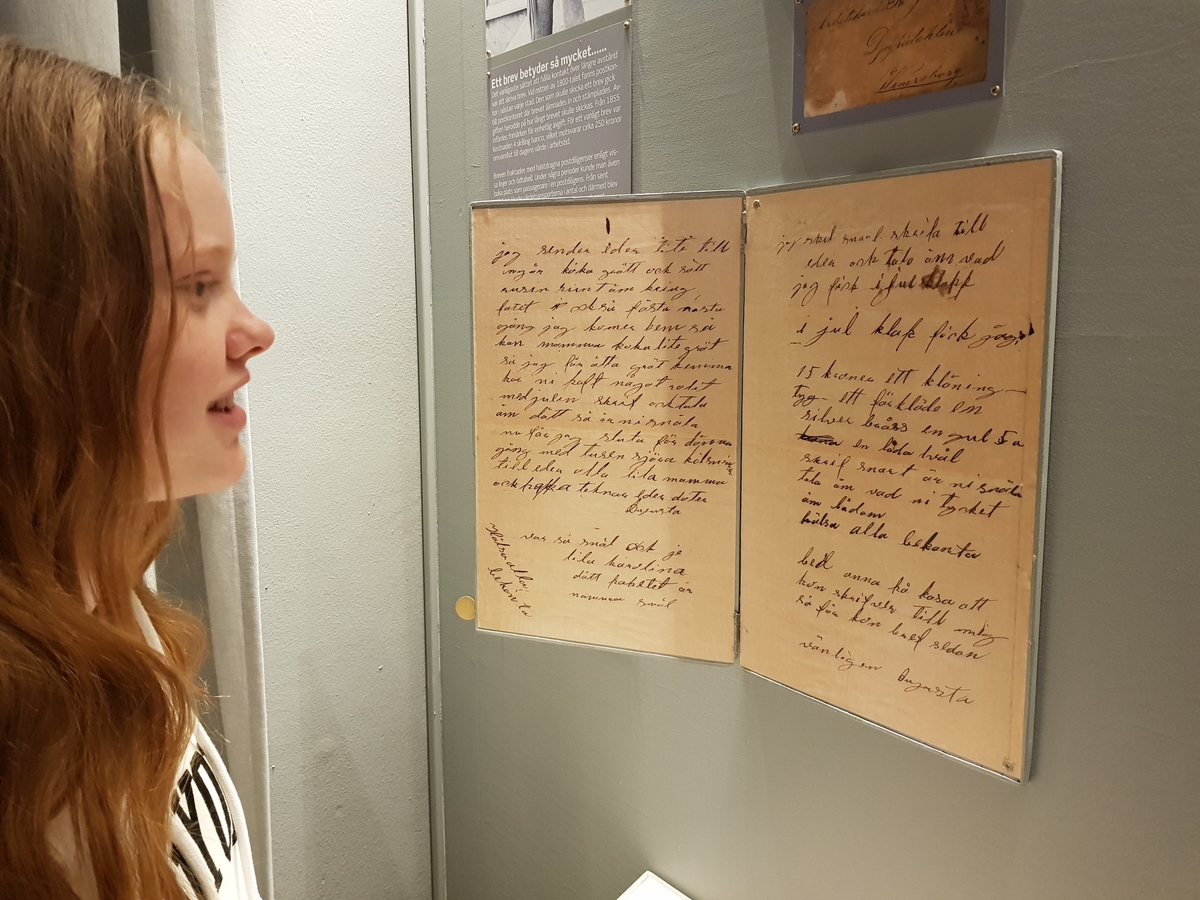 Ett brev betyder så mycket......
Det vanligaste sättet att hålla kontakt över längre avstånd
var att skriva brev. Vid mitten av 1800-talet fanns postkon-
tor i nästan varje stad. Den som skulle skicka ett brev gick
till postkontoret där brevet lämnades in och stämplades. Av-
giften berodde på hur långt brevet skulle skickas. Från 1855
infördes frimärken för enhetlig avgift. För ett vanligt brev var
kostnaden 4 skilling banco, vilket motsvarar cirka 250 kronor
omvandlat till dagens värde i arbetstid.
Breven fraktades med hästdragna postdiligenser enligt vis-
sa linjer och tidtabell. Under några perioder kunde man även
boka plats som passagerare i en postdiligens. Från sent
i antal och därmed blev
Wenersborg
jag sender eder lite till
koka grött och sött
rusin runt äm kring
fatet så fösta nästa
gång jag komer hem så
kan mamma koka lite gröt
så jag får ätta gröt hemma
har ni haft något rolit
med julen skrif och tala
äm dätt så är ni snäla
nu får jag sluta för dänna
gång med tusen sjöna hälsningar
till eder alla lila mamma
och pappa teknar Eder dåter
Augusta
var så snäl och je
lila karolina
dätt paketet är
mamma snäl
Hälsa alla
bekanta
jag skul snart skrifa till
eder och tala äm vad
jag fick i jul klapp
i jul klap fick jag
15 kroner ett kläning
tyg ett förkläde en
silver bråss en gul 5 a
en låda tvål
skrif snart är ni snäla
tala äm vad ni tycket
äm lådam
hälsa alla bekanta
bed anna på kasa att
hon skrifver till mig
så får hon bref sedan
vänligen Augusta